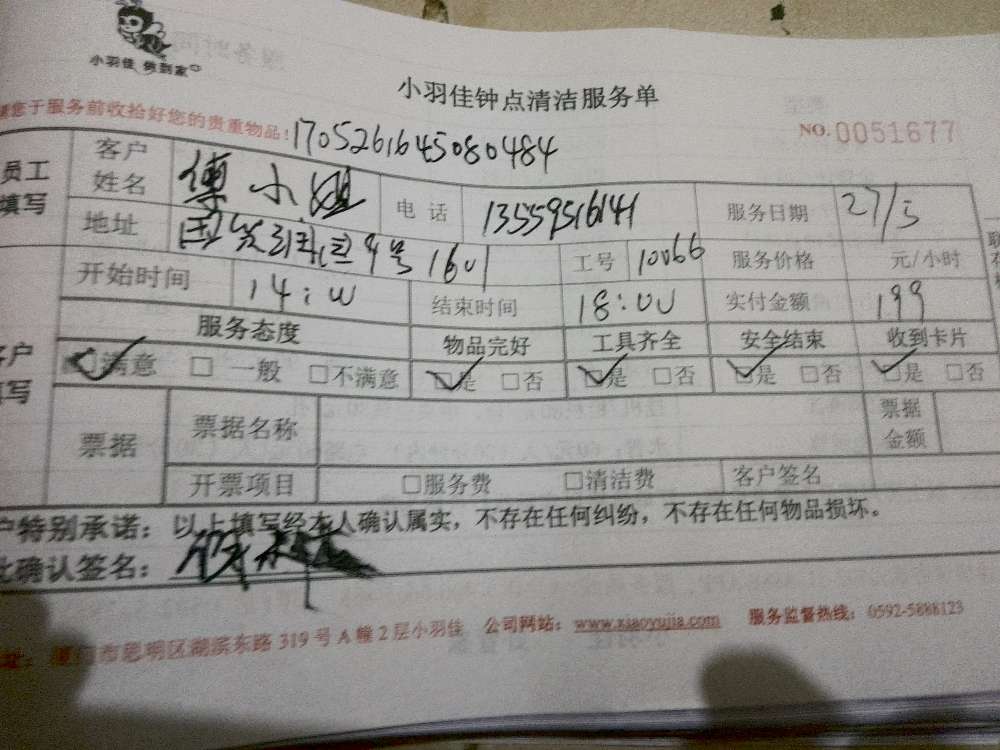 小羽佳 做到家
小羽佳钟点清洁服务单
请您于服务前收拾好您的贵重物品!
1705261645080484
NO.0051677
员工填写
客户姓名 傅小姐 电话 13559516141 服务日期 27/5
地址 4号1601 工号 10066 服务价格 元/小时
开始时间 14:00 结束时间 18:00 实付金额 199
客户填写
服务态度 物品完好 工具齐全 安全结束 收到卡片
满意 一般 不满意 是 否 是 否 是 否 是 否
票据 票据名称 票据金额
开票项目 服务费 清洁费 客户签名
户特别承诺：以上填写经本人确认属实，不存在任何纠纷，不存在任何物品损坏。
此确认签名：
址：厦门市思明区湖滨东路319号A幢2层小羽佳 公司网站：www.xiaoyujia.com 服务监督热线：0592-5888123